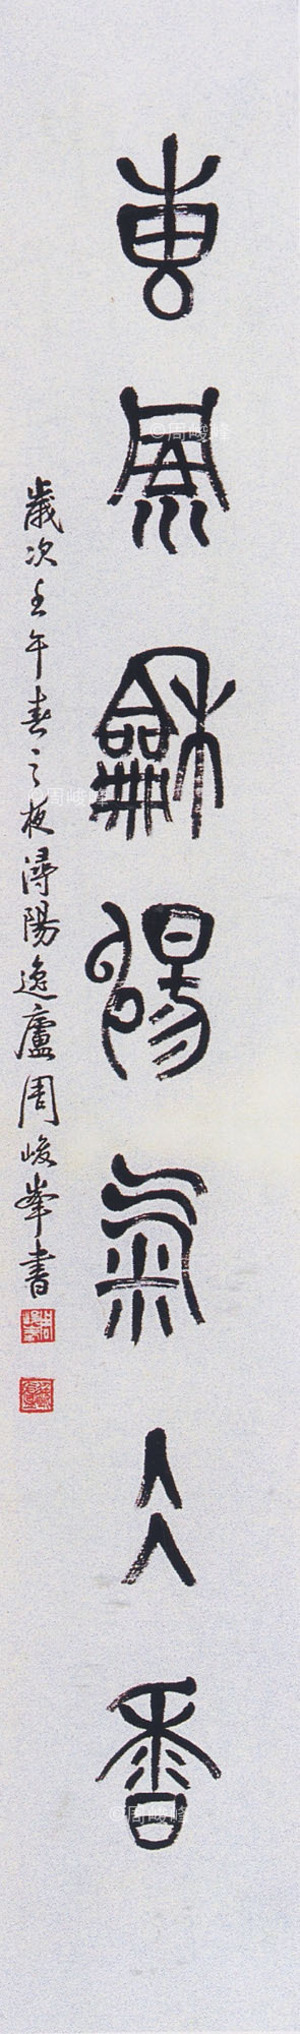 惠風龢暢氣大香
歲次壬午春之夜潯陽逸廬周峻峯書
©周峻峰
©周峻峰
©周峻峰